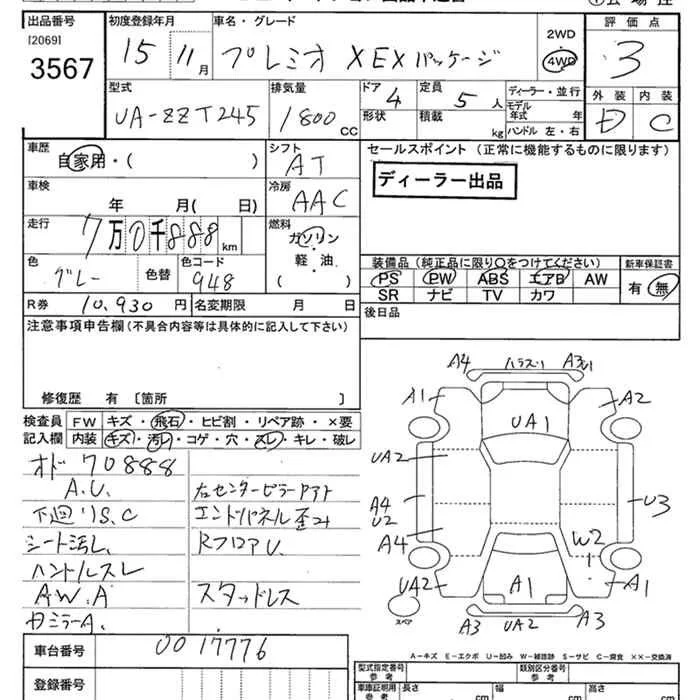 出品番号 初度登録年月 車名・グレード 評価点
[2069] 3567 15 11月 プレミオ XEXパッケージ 2WD 4WD 3
型式 排気量 ドア 定員 ディーラー・並行 外装 内装
UA-ZZT245 1800 CC 4 5 人 モデル年式 年 D C
形状 積載 kg ハンドル 左・右
車歴 シフト セールスポイント (正常に機能するものに限ります)
自家用・( ) AT
ディーラー出品
車検 冷房
年 月( 日) AAC
走行 燃料
7万0千888km ガソリン・軽・油 ( )
装備品(純正品に限り○をつけてください) 新車保証書
色 色替 色コード PS PW ABS エアB AW 有・無
グレー 948 SR ナビ TV カワ
R券 10,930円 名変期限 月 日 後日品
注意事項申告欄(不具合内容等は具体的に記入して下さい)
修復歴 有 〔箇所 〕
検査員 FW キズ・飛石・ヒビ割・リペア跡・×要
記入欄 内装 キズ・汚レ・コゲ・穴・スレ・キレ・破レ
オド 70888
A.U.
右センターピラーアト
下廻りS.C
エンドパネル歪
RフロアU.
ハンドルスレ
スタッドレス
AW.A
ミラーA.
A4 A3
A1 A2
UA1
UA2
A4 U2 U3
A4 W2
UA2 A1 A1
スペア A3 UA2 A3
A-キズ E-エクボ U-凹み W-補修跡 S-サビ C-腐食 ××-交換済
車台番号 0017776
型式指定番号 参考 類別区分番号 参考
登録番号
車庫証明用 参考 長さ cm 幅 cm 高さ cm